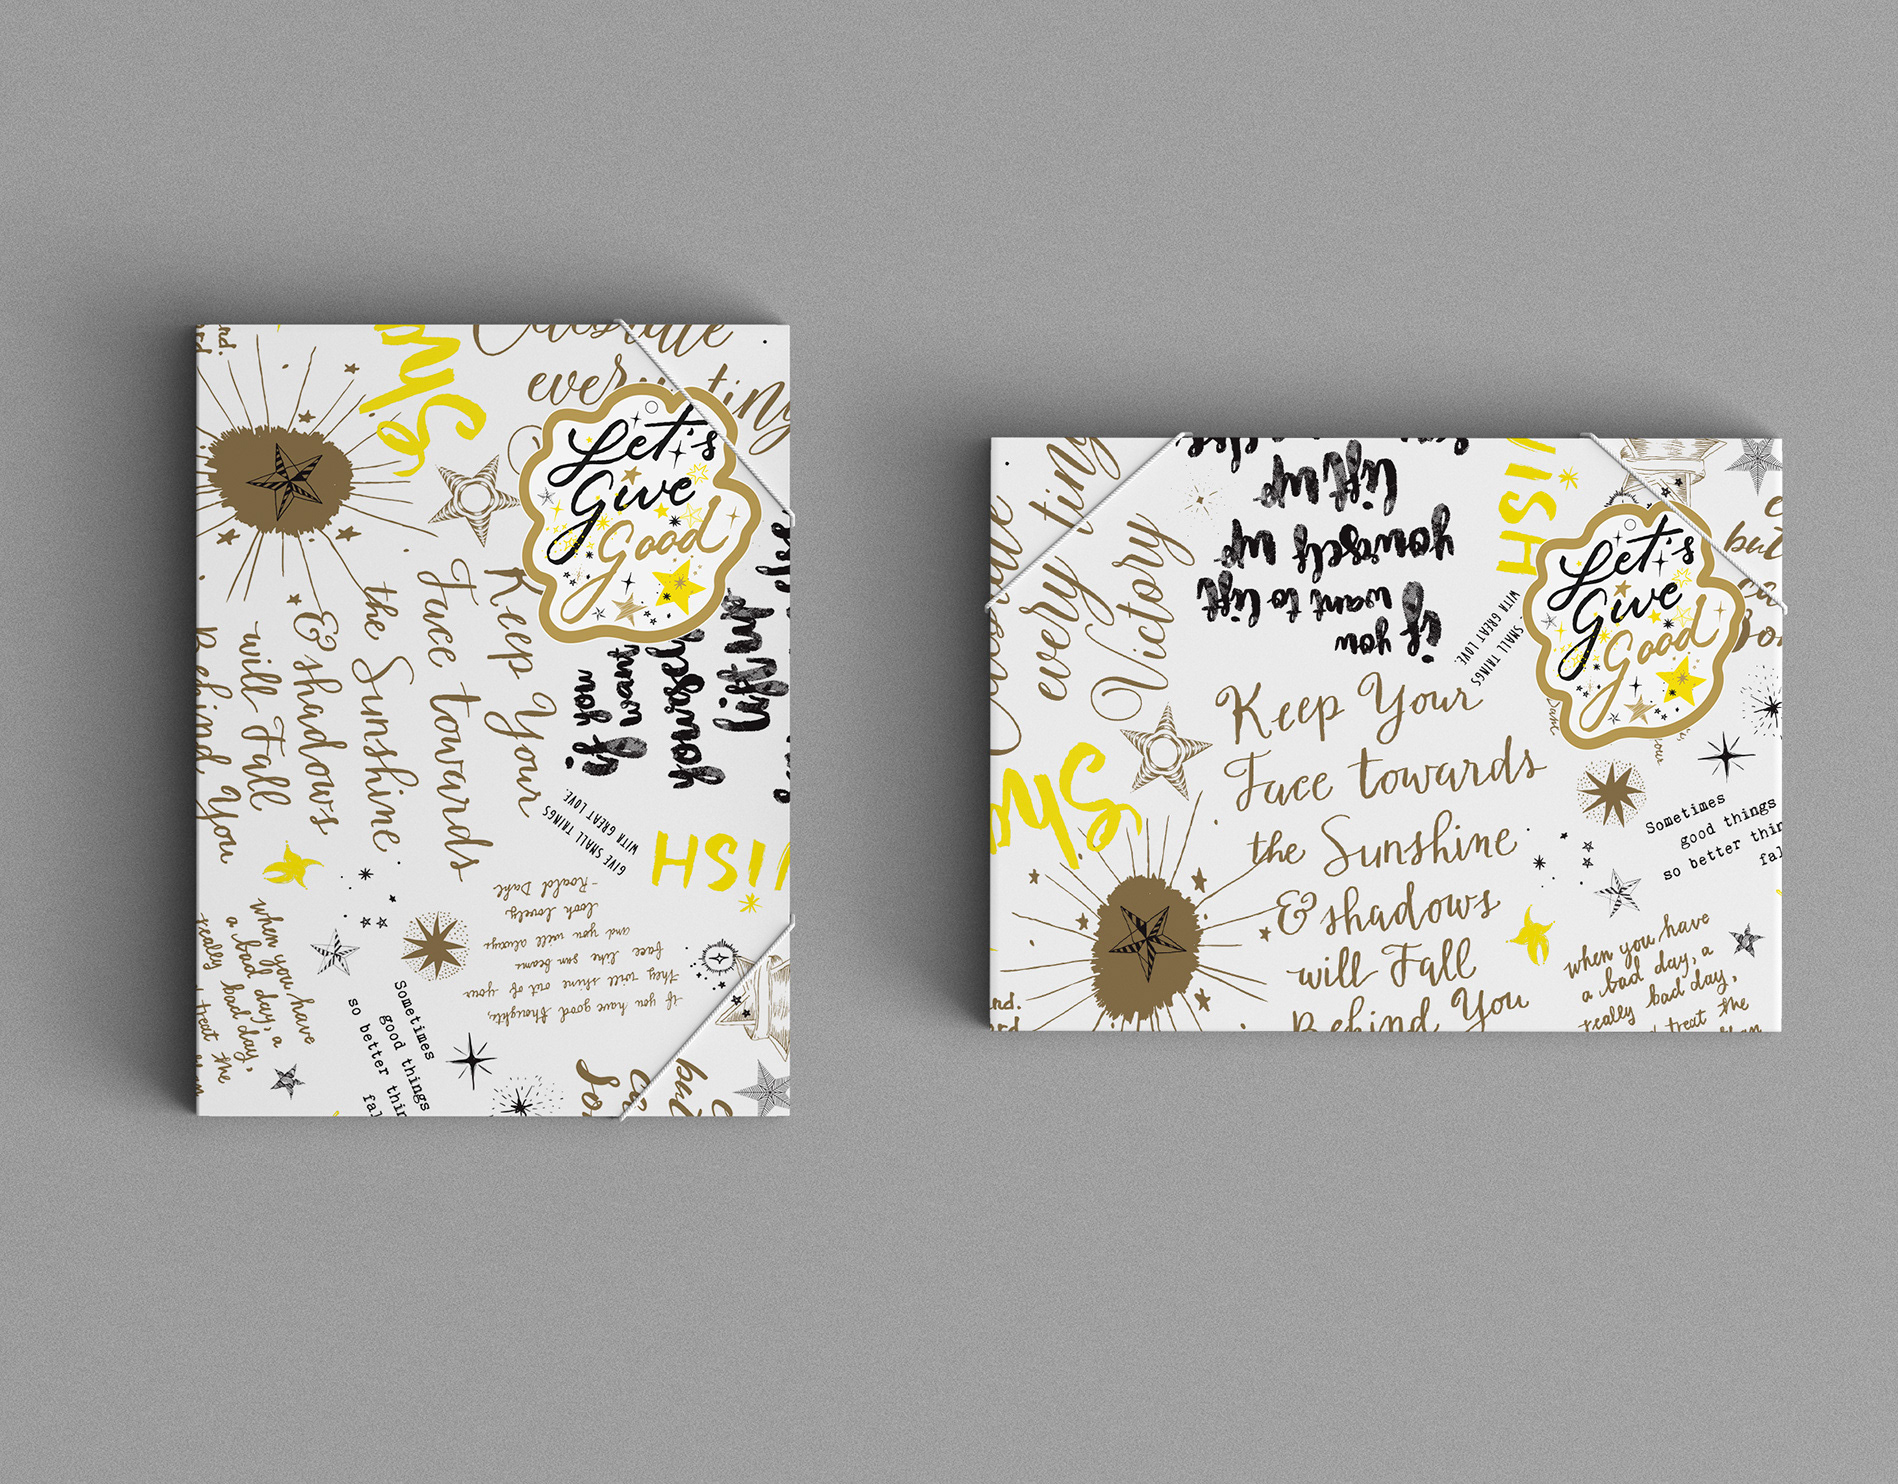 Celebrate
every ting
Let's
Give
Good
Keep Your
Face towards
the Sunshine
& shadows
will Fall
Behind You
if you
want
yourself
lift up
GIVE SMALL THINGS
WITH GREAT LOVE.
if you have good thoughts,
they will shine out of your
face like sun beams
and you will always
look lovely.
-Roald Dahl
when you have
a bad day, a
really bad day,
treat the
Sometimes
good things
so better thin
fal
but
nd.
ISH
every ting
Victory
if you
want to lift
yourself up
lift up
ISH
SMALL THINGS
WITH GREAT LOVE.
Let's
Give
Good
but
Keep Your
Face towards
the Sunshine
& shadows
will Fall
Behind You
Sometimes
good things
so better thin
fal
when you have
a bad day, a
really bad day,
treat the
nd.